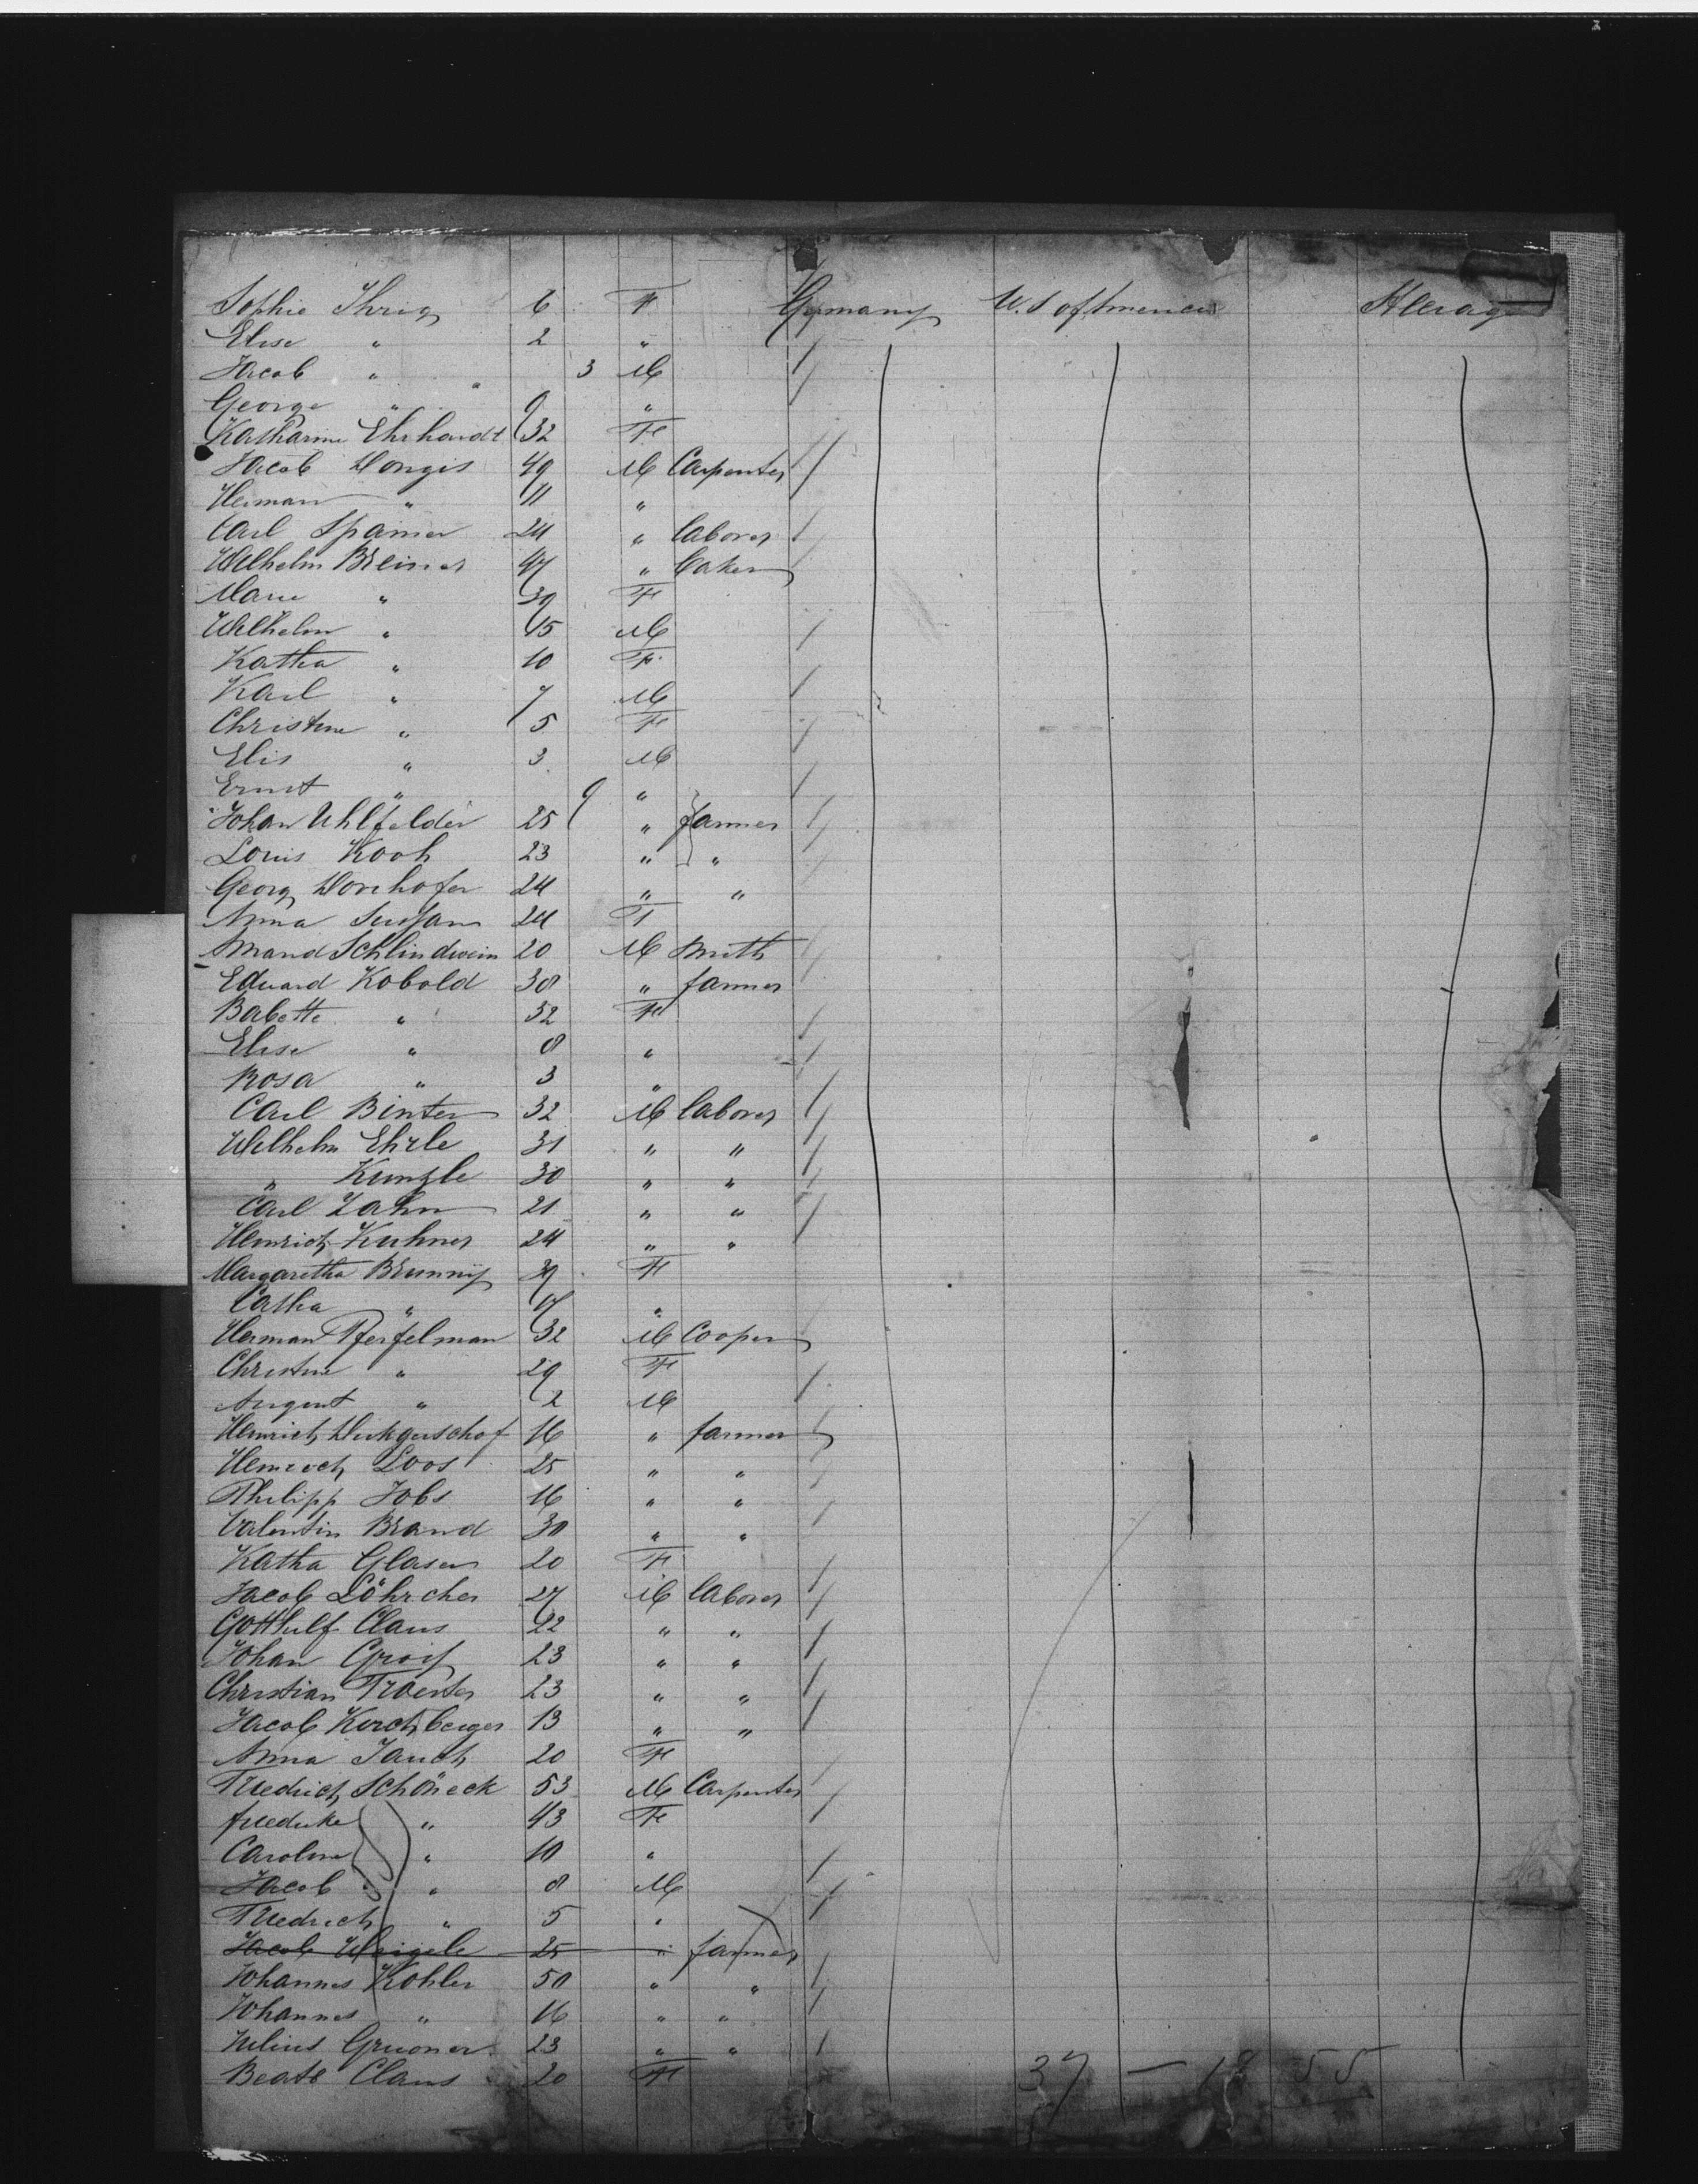 Sophie Ihrig 6 F Germany U.S of America Steerage
Elise " 2 "
Jacob " 3 M
George " 9 "
Katharine Ehrhardt 32 F
Jacob Donges 49 M Carpenter
Herman " 11 "
Carl Spanier 24 " laborer
Wilhelm Breiner 47 " baker
Marie " 39 F
Wilhelm " 15 M
Katha " 10 F
Karl " 7 M
Christine " 5 F
Elis " 3 M
Ernst " 9 "
Johan Uhlfelder 25 " farmer
Louis Koch 23 " "
Georg Dorrhofer 24 " "
Anna 24 F
Amand Schlindwein 20 M Smith
Eduard Kobold 38 " farmer
Babette " 32 F
Elise " 8 "
Rosa " 3 "
Carl Binter 32 M laborer
Wilhelm Ehrle 31 " "
" Kunzle 30 " "
Carl Zahn 21 " "
Heinrich Kuhner 24 " "
Margaretha 39 F
Catha " "
Herman 32 M Cooper
Christine " 29 F
August " 2 M
Heinrich 16 " farmer
Heinrich Loos 25 " "
Philipp Jobs 16 " "
Valentin Brand 30 " "
Katha Glaser 20 F
Jacob Löhrcher 27 M laborer
Gotthilf Claus 22 " "
Johan 23 " "
Christian Troester 23 " "
Jacob Kirchberger 13 " "
Anna Jauch 20 F
Friedrich Schöneck 53 M Carpenter
friedrike " 43 F
Caroline " 10 "
Jacob " 8 M
Friedrich " 5 "
Jacob Weigele 25 " farmer
Johannes Kohler 50 " "
Johannes " 16 " "
Julius Gruoner 23 " "
Beate Claus 20 F
37 — 18 55